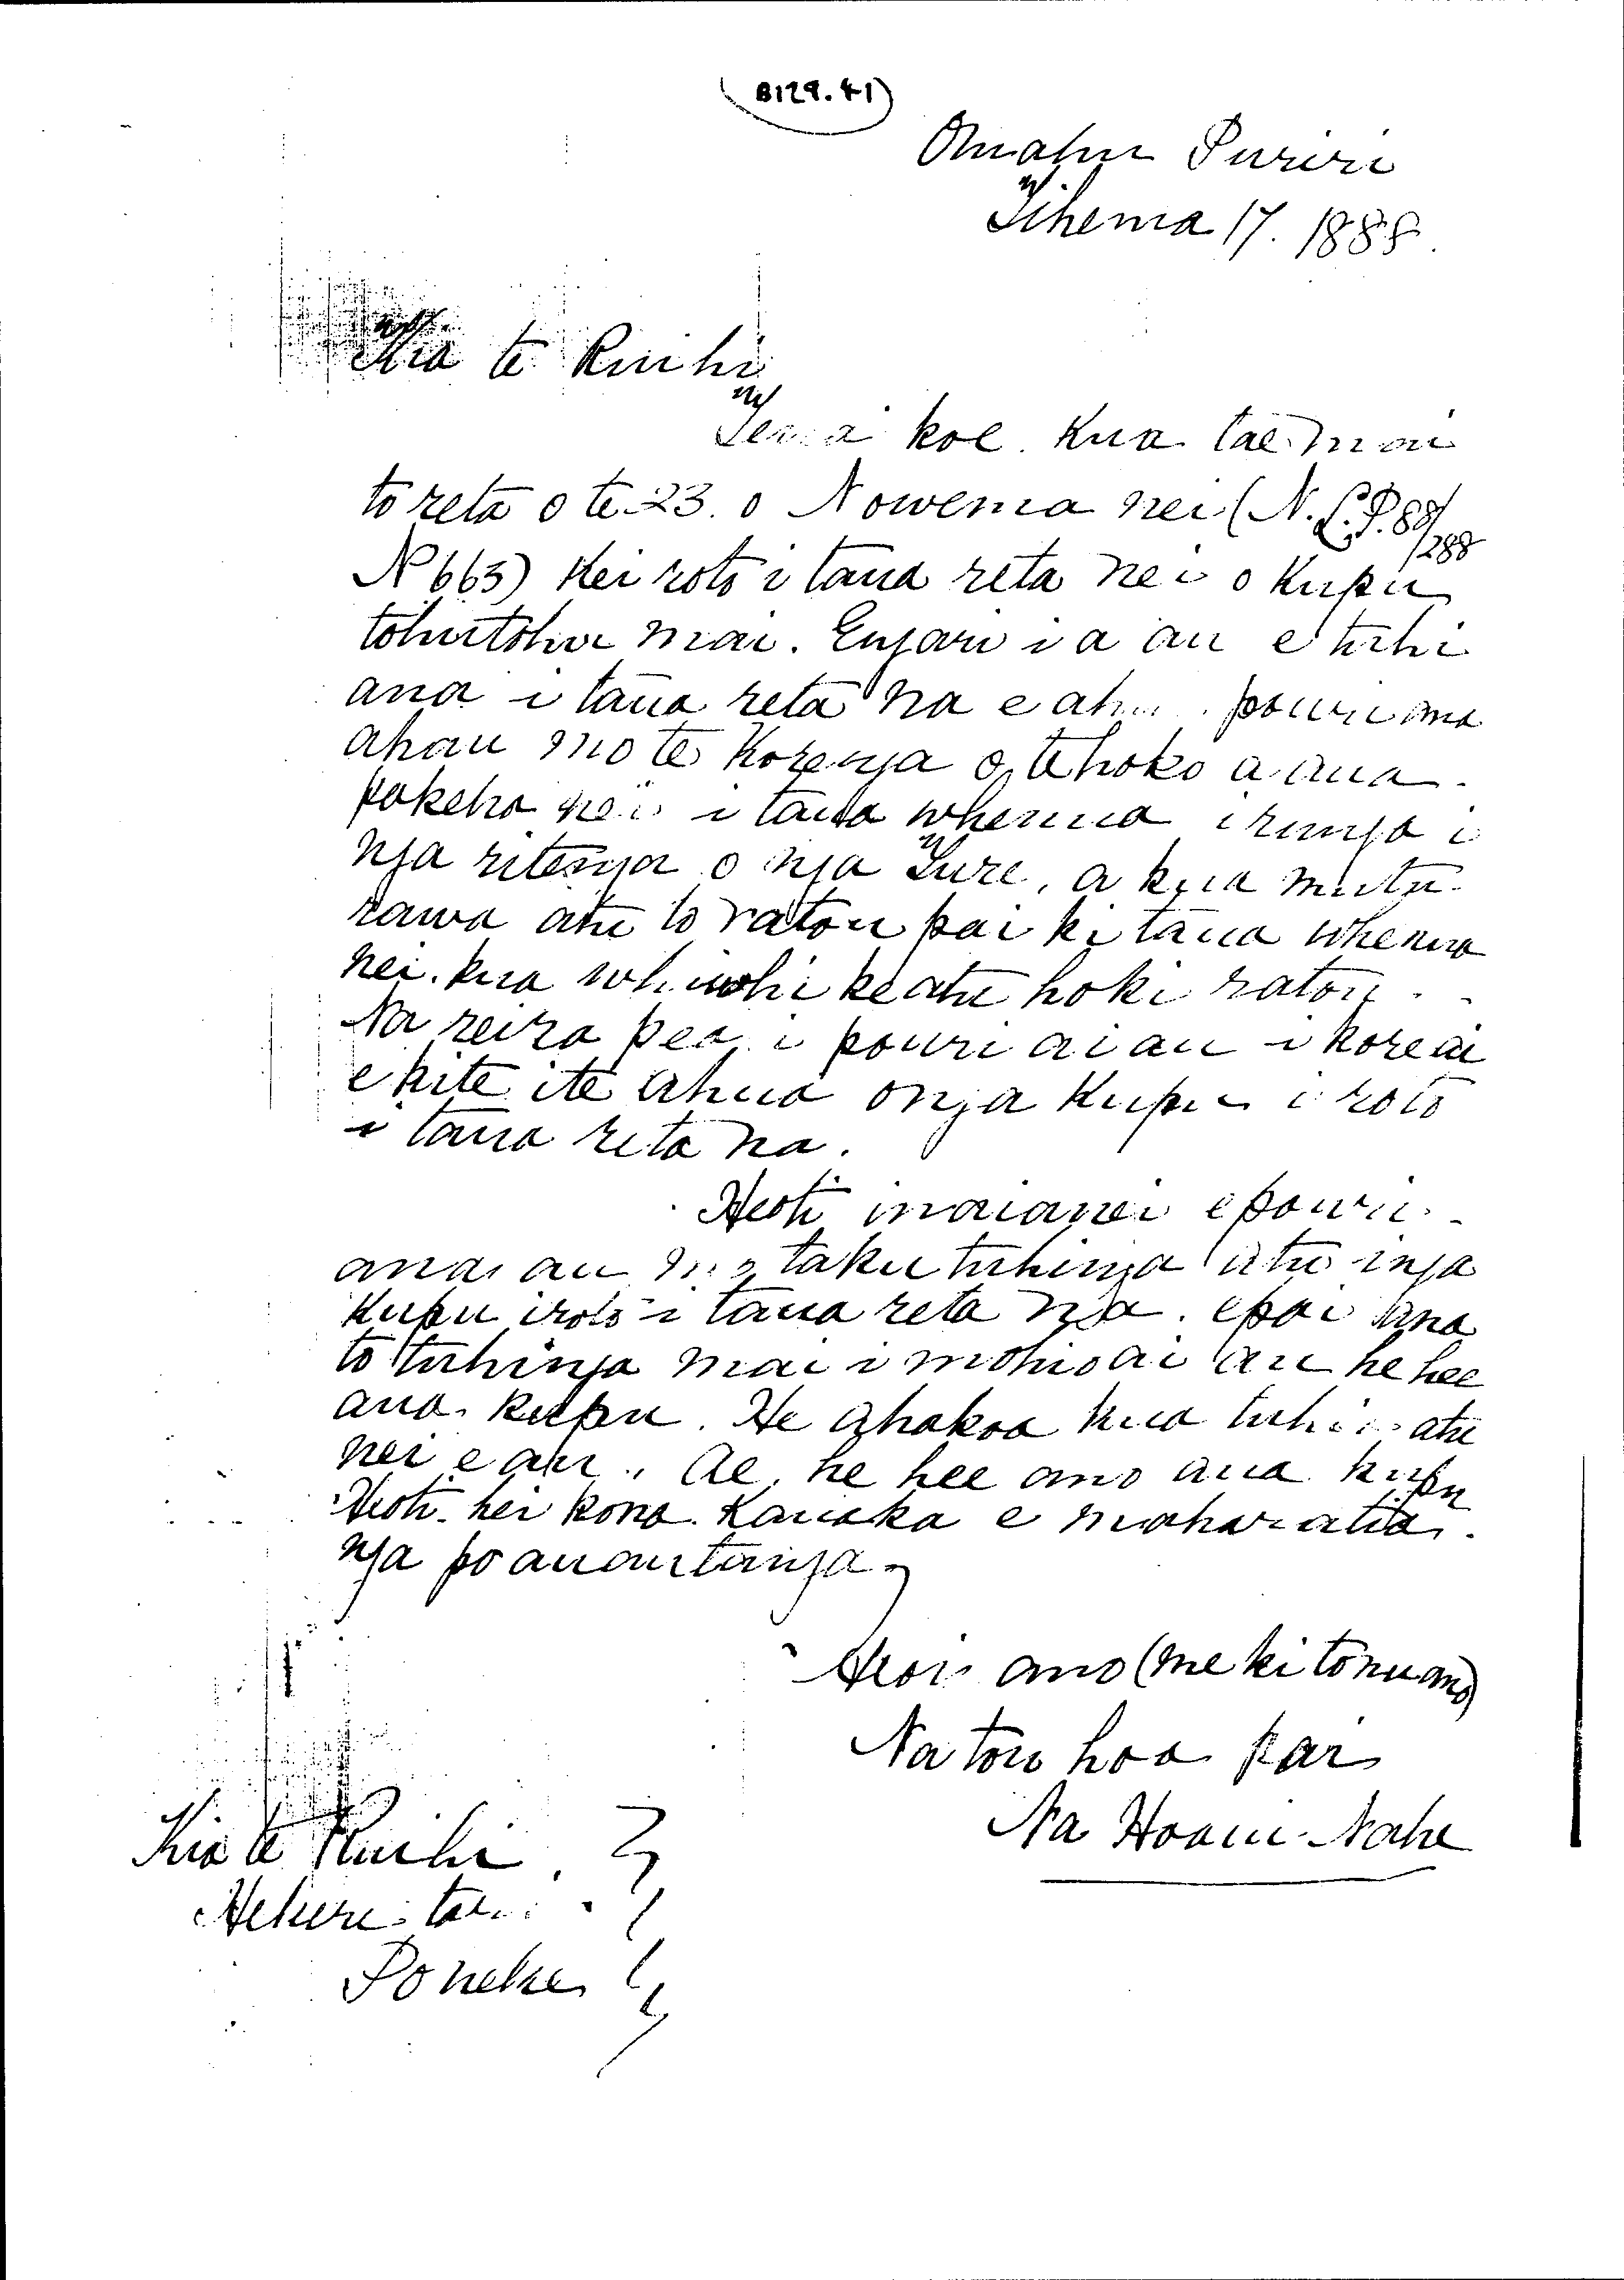 (B129.41)
Omahu Puriri
Tihema 17. 1888.
Kia te Ruihi
Tena koe. Kua tae mai
to reta o te 23. o Nowema nei (N.L.P.88/
/288
No 663) Kei roto i taua reta nei o Kupu
tohutohu mai. Engari i a au e tuhi
ana i taua reta na e ahu pouri ana
ahau mo te Korenga o te hoko a aua
pakeha nei i taua whenua i runga i
nga ritenga o nga Ture, a kua mutu
rawa atu to ratou pai ki taua whenua
nei. kua whiwhi ke atu hoki ratou
Na reira pea i pouri ai au i kore ai
e kite i te ahua o nga Kupu i roto
i taua reta na.
Heoti inaianei e pouri
ana au mo taku tuhinga atu i nga
Kupu i roto i taua reta na. e pai ana
to tuhinga mai i mohio ai au he hee
aua kupu. He ahakoa kua tuhia atu
nei e au. Ae, he hee ano aua kupu
Heoti. hei kona. Kauaka e maharatia
nga poauautanga.
Heoi ano (me ki tonu ano)
Na tou hoa pai
Na Hoani Nahe
Kia te Ruihi
Hekeri tari
Poneke